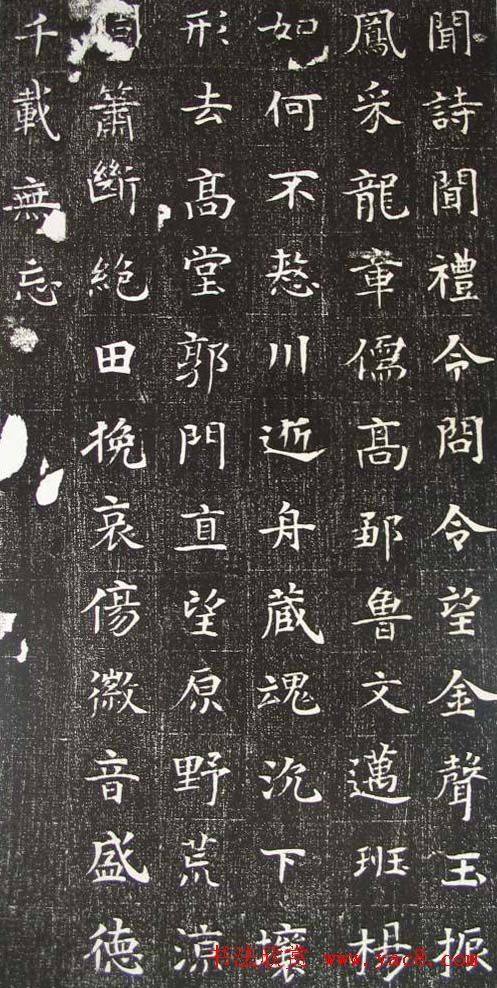 聞詩聞禮令問令望金聲玉振
鳳采龍章儒高鄒魯文邁班楊
如何不憗川逝舟藏魂沉下壤
形去高堂郭門直望原野荒涼
簫斷絶田挽哀傷徽音盛德
千載無忘
书法欣赏 www.yac8.com